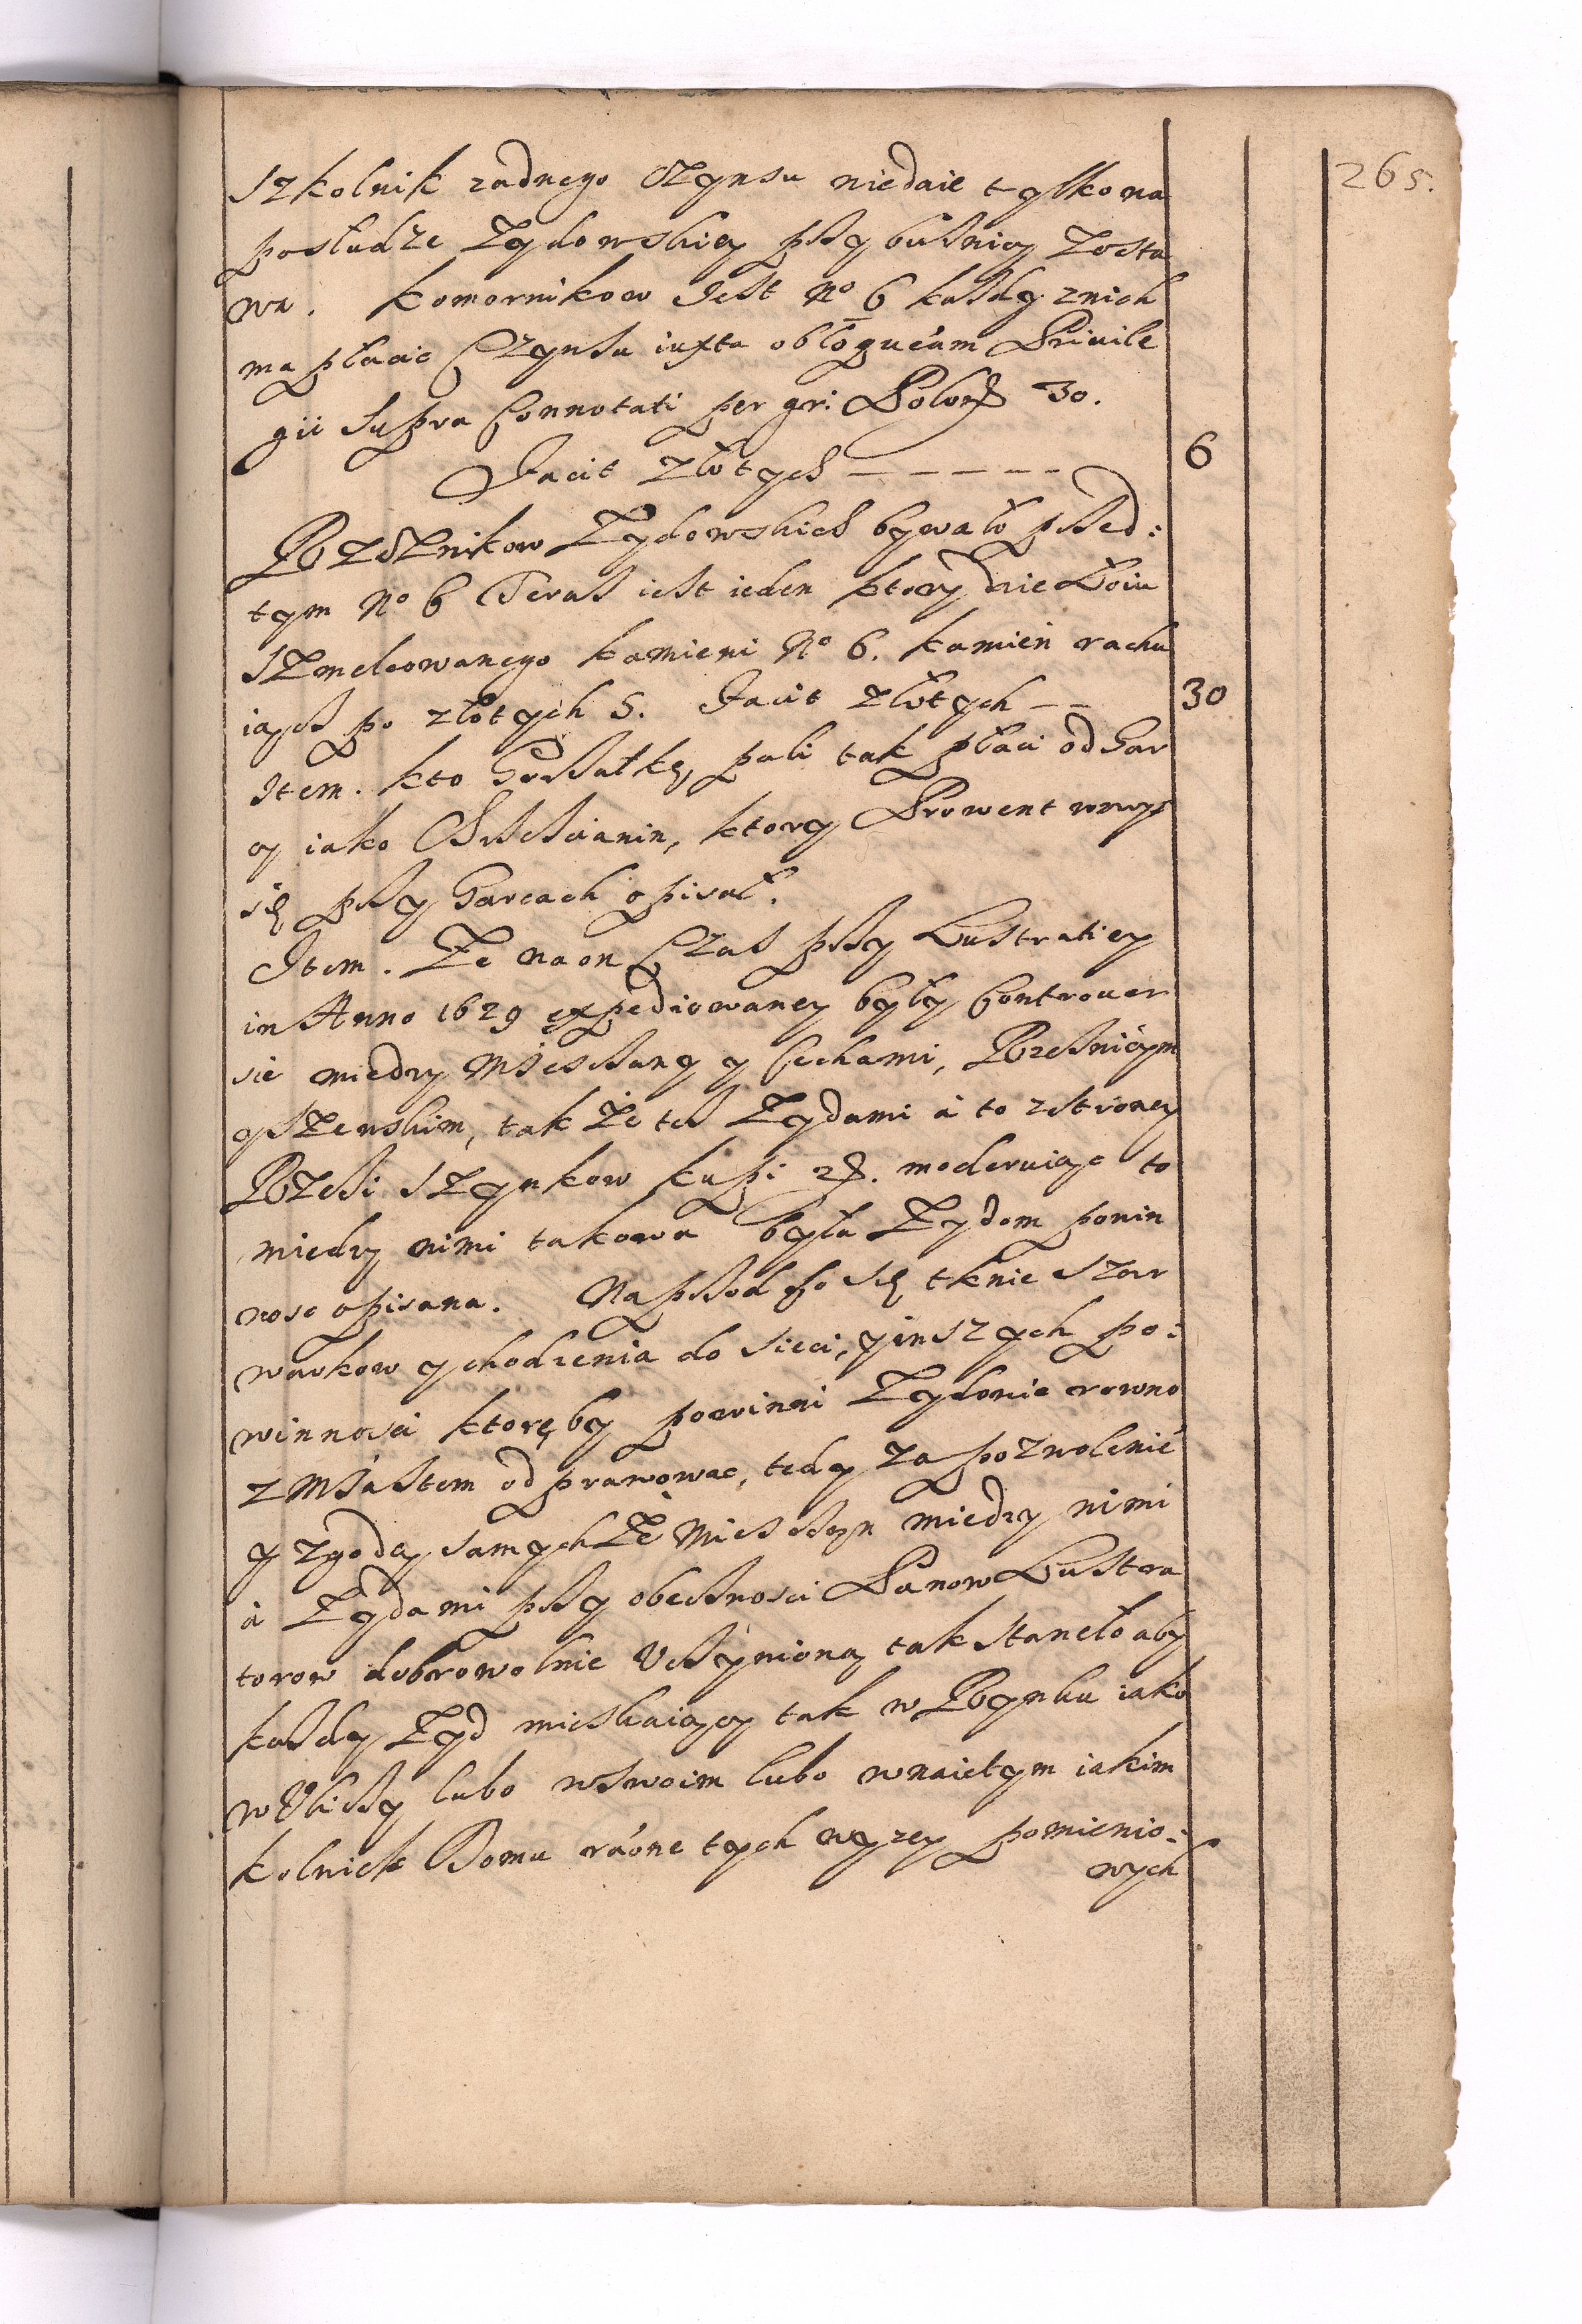 265.
Szkolnik zadnego Czynsu niedaie tylko na
posłudze Zydowskiey przy buznicy zosta
wa. Komornikow Jest No 6 kazdy z nich
ma płacic Czynsu iuxta obloquēam Priuile
gii supra Connotati per gr: Polon: 30.
Facit złotych — — — — — 6
Rzeznikow Zydowskich bywało przed:
tym No 6 Teraz iest ieden ktory daie Łoiu
szmelcowanego kamieni No 6. kamień rachu
iącz po złotych 5. Facit złotych — — 30
Item. kto Gorzałkę pali tak płaci od Gar
cy iako Chrzescianin, ktory Prowent wwyz
się przy Garcach opisał.
Item. Ze na on Czas przy Lustratiey
in Anno 1629 expediowaney były Controuer
sie miedzy Mieszczany y Cechami, Rzeznicym
y Szewskim, tak że tez Zydami à to z strony
Rzezi Szynkow kupi etc. moderuiąc to
miedzy nimi takowa była Zydom powin
nosc opisana. Naprzod co się tknie Szar
warkow y chodzenia do sieci, y inszych po:
winnosci ktoręby powinni Zydowie rowno
z Miastem odprawowac, tedy za pozwolenié
y zgodą samychże Mieszczan miedzy nimi
à Zydami przy obecznosci Panow Lustra
torow dobrowolnie Vczynioną tak stanęło aby
kazdy Zyd mieszkaiący tak w Rynku iako
w Vliczy lubo w swoim lubo w naiętym iakim
kolwiek Domu rāone tych wyzey pomienio:
nych